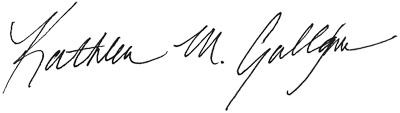 Kathleen M. Gallagher